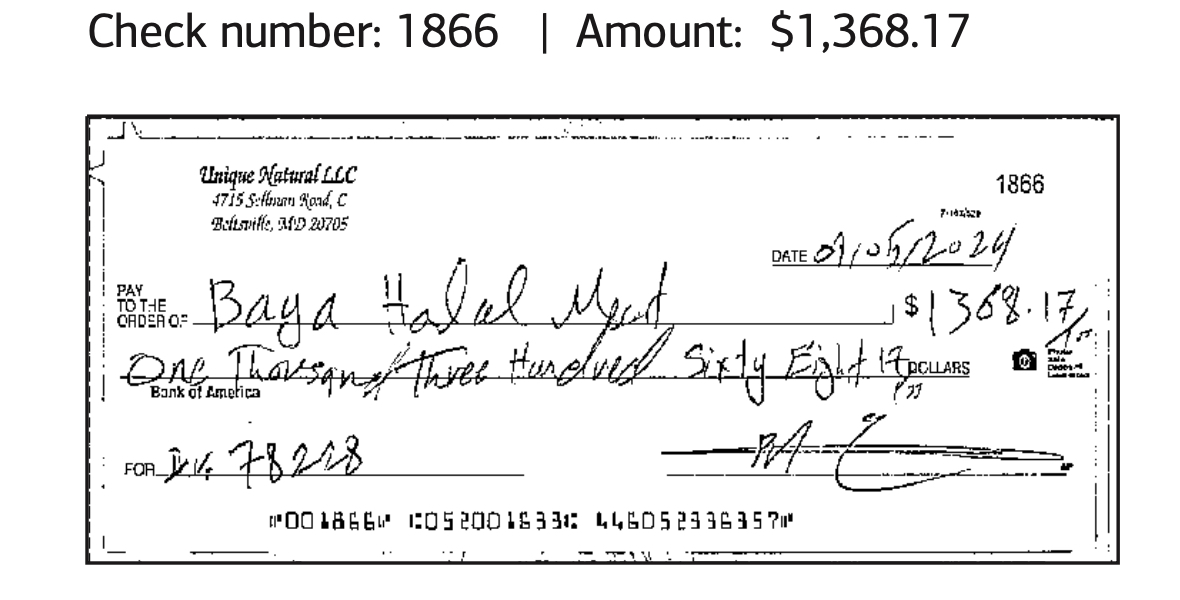 Check number: 1866 | Amount: $1,368.17
Unique Natural LLC
4715 Sellman Road, C
Beltsville, MD 20705
1866
DATE 01/05/2024
PAY TO THE ORDER OF Baya Halal Meat $1368.17
One Thousand Three Hundred Sixty Eight 17 DOLLARS
Bank of America
FOR 78228
⑈001866⑈ ⑆052001633⑆ 446052336357⑈